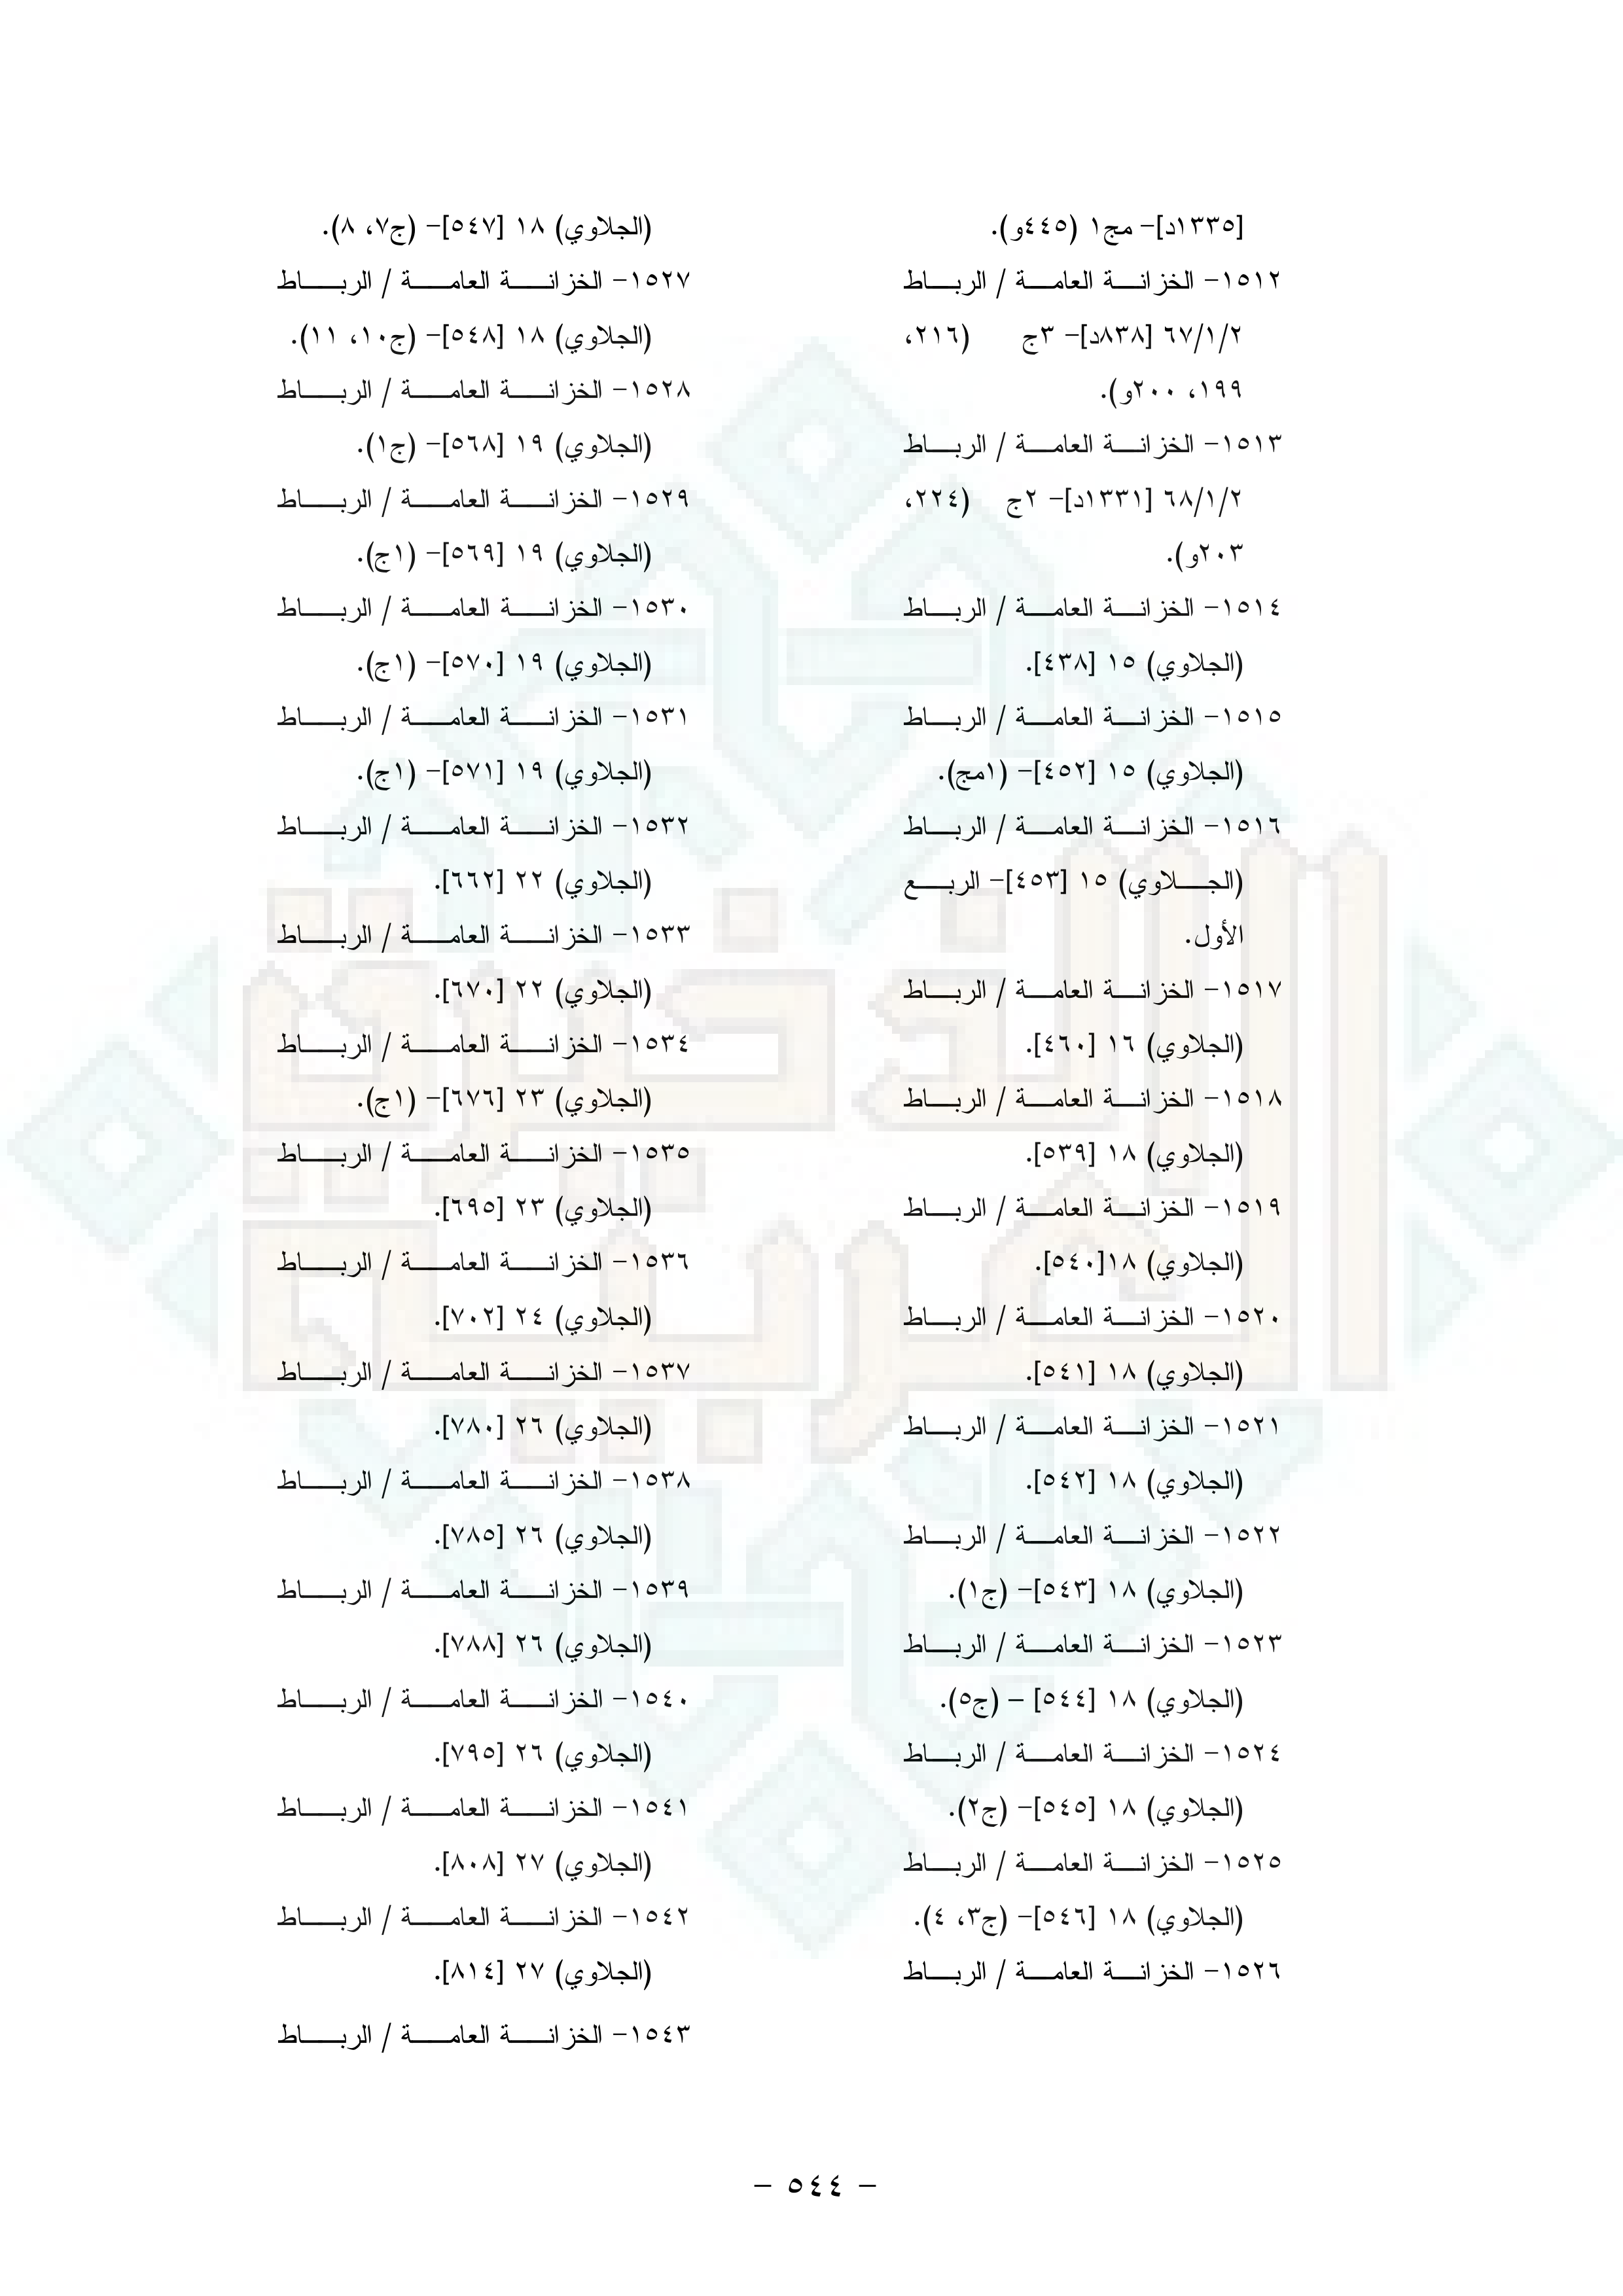 [١٣٣٥د]- مج١ (٤٤٥و).
١٥١٢- الخزانة العامة / الرباط
٦٧/١/٢ [٨٣٨د]- ٣ج (٢١٦،
١٩٩، ٢٠٠و).
١٥١٣- الخزانة العامة / الرباط
٦٨/١/٢ [١٣٣١د]- ٢ج (٢٢٤،
٢٠٣و).
١٥١٤- الخزانة العامة / الرباط
(الجلاوي) ١٥ [٤٣٨].
١٥١٥- الخزانة العامة / الرباط
(الجلاوي) ١٥ [٤٥٢]- (١مج).
١٥١٦- الخزانة العامة / الرباط
(الجلاوي) ١٥ [٤٥٣]- الربع
الأول.
١٥١٧- الخزانة العامة / الرباط
(الجلاوي) ١٦ [٤٦٠].
١٥١٨- الخزانة العامة / الرباط
(الجلاوي) ١٨ [٥٣٩].
١٥١٩- الخزانة العامة / الرباط
(الجلاوي) ١٨[٥٤٠].
١٥٢٠- الخزانة العامة / الرباط
(الجلاوي) ١٨ [٥٤١].
١٥٢١- الخزانة العامة / الرباط
(الجلاوي) ١٨ [٥٤٢].
١٥٢٢- الخزانة العامة / الرباط
(الجلاوي) ١٨ [٥٤٣]- (ج١).
١٥٢٣- الخزانة العامة / الرباط
(الجلاوي) ١٨ [٥٤٤] – (ج٥).
١٥٢٤- الخزانة العامة / الرباط
(الجلاوي) ١٨ [٥٤٥]- (ج٢).
١٥٢٥- الخزانة العامة / الرباط
(الجلاوي) ١٨ [٥٤٦]- (ج٣، ٤).
١٥٢٦- الخزانة العامة / الرباط
(الجلاوي) ١٨ [٥٤٧]- (ج٧، ٨).
١٥٢٧- الخزانة العامة / الرباط
(الجلاوي) ١٨ [٥٤٨]- (ج١٠، ١١).
١٥٢٨- الخزانة العامة / الرباط
(الجلاوي) ١٩ [٥٦٨]- (ج١).
١٥٢٩- الخزانة العامة / الرباط
(الجلاوي) ١٩ [٥٦٩]- (١ج).
١٥٣٠- الخزانة العامة / الرباط
(الجلاوي) ١٩ [٥٧٠]- (١ج).
١٥٣١- الخزانة العامة / الرباط
(الجلاوي) ١٩ [٥٧١]- (١ج).
١٥٣٢- الخزانة العامة / الرباط
(الجلاوي) ٢٢ [٦٦٢].
١٥٣٣- الخزانة العامة / الرباط
(الجلاوي) ٢٢ [٦٧٠].
١٥٣٤- الخزانة العامة / الرباط
(الجلاوي) ٢٣ [٦٧٦]- (١ج).
١٥٣٥- الخزانة العامة / الرباط
(الجلاوي) ٢٣ [٦٩٥].
١٥٣٦- الخزانة العامة / الرباط
(الجلاوي) ٢٤ [٧٠٢].
١٥٣٧- الخزانة العامة / الرباط
(الجلاوي) ٢٦ [٧٨٠].
١٥٣٨- الخزانة العامة / الرباط
(الجلاوي) ٢٦ [٧٨٥].
١٥٣٩- الخزانة العامة / الرباط
(الجلاوي) ٢٦ [٧٨٨].
١٥٤٠- الخزانة العامة / الرباط
(الجلاوي) ٢٦ [٧٩٥].
١٥٤١- الخزانة العامة / الرباط
(الجلاوي) ٢٧ [٨٠٨].
١٥٤٢- الخزانة العامة / الرباط
(الجلاوي) ٢٧ [٨١٤].
١٥٤٣- الخزانة العامة / الرباط
الذخيرة
العربية
- ٥٤٤ -